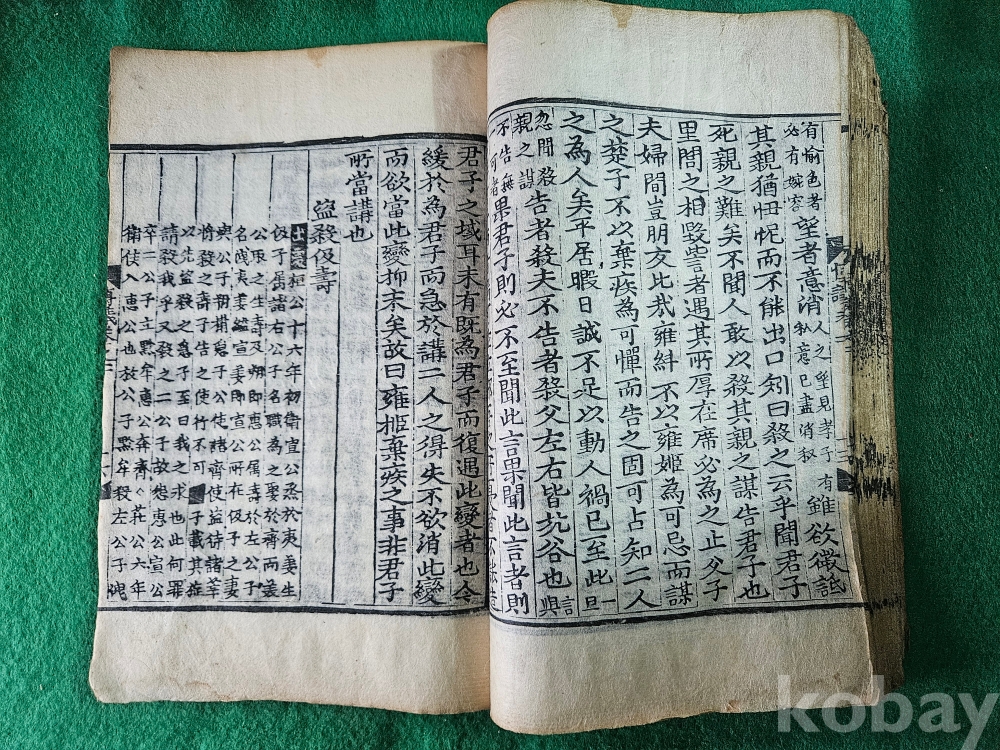 有愉色者必有婉容望者意消人之望見孝子有私意已盡消釋雖欲微詆
其親猶忸怩而不能出口矧曰殺之云乎聞君子
死親之難矣不聞人敢以殺其親之謀告君子也
里閭之相毀訾者遇其所厚在席必為之止父子
夫婦間豈朋友比哉雍糾不以雍姬為可忌而謀
之楚子不以棄疾為可憚而告之固可占知二人
之為人矣平居暇日誠不足以動人禍已至此言一旦
忽聞殺親之謀告者殺夫不告者殺父左右皆坑谷也與
不告無一可者果君子則必不至聞此言果聞此言者則
君子之域耳未有既為君子而復遇此變者也令
緩於為君子而急於講二人之得失不欲消此變
而欲當此變抑末矣故曰雍姬棄疾之事非君子
所當講也
盜殺伋壽
出處桓公十六年初衛宣公烝於夷姜生
伋子屬諸右公子名職為之娶於齊而美
公取之生壽及朔即惠公屬壽於左公子
名洩夷姜縊宣姜即宣公所在伋子之妻
與公子朔搆急子公使諸齊使盜待諸莘
將殺之壽子告之使行不可子載其旌
以先盜殺之急子至曰我之求也此何罪
請殺我乎又殺之二公子故怨惠公宣公
卒二公子立黔牟惠公奔齊莊公六年
衛侯入惠公也放公子黔牟殺左公子洩
kobay